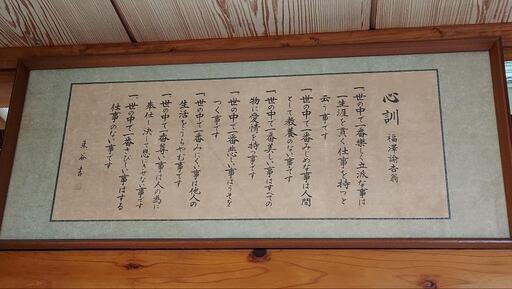 心訓　福澤諭吉翁
一世の中で一番楽しく立派な事は
一生涯を貫く仕事を持つと
云う事です
一世の中で一番みじめな事は人間
として教養のない事です
一世の中で一番美しい事はすべての
物に愛情を持つ事です
一世の中で一番悲しい事はうそを
つく事です
一世の中で一番みにくい事は他人の
生活をうらやむ事です
一世の中で一番尊い事は人の為に
奉仕し決して恩にきせない事です
一世の中で一番さびしい事はする
仕事のない事です